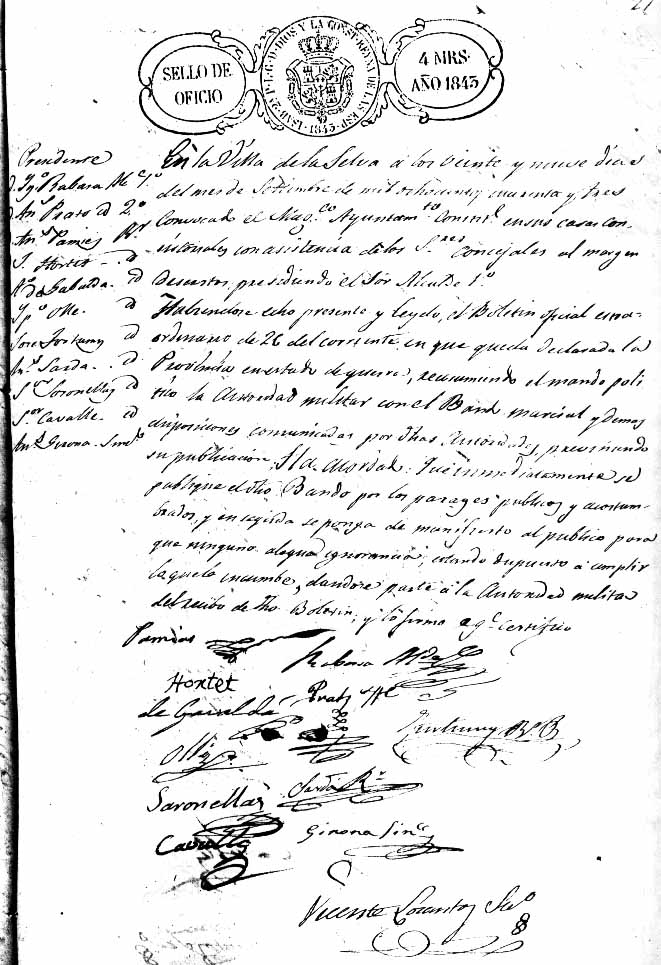 21
SELLO DE
OFICIO
ISAB. 2ª P. L. G. D. DIOS Y LA CONST. REYNA DE LAS ESP.
1843
4 MRS.
AÑO 1843
Presidente
Ygº Rabasa Alce 1º
Anº Prats id 2º
Anº Pamies Rr
J. Hortet id
de Gabalda id
Ollé id
Jose Fortuny id
Sardá id
Soronellas id
Cavalle id
Anº Girona Sindº
En la Villa de la Selva a los veinte y nueve dias
del mes de Settiembre de mil ochocientos cuarenta y tres
Convocado el Magco Ayuntamto Constl en sus casas Con-
sistoriales con asistencia de los Sres concejales al margen
descritos, presidiendo el Sor Alcalde 1º
Habiendose echo presente y leydo, el Boletin oficial estra-
ordinario de 26 del corriente, en que queda declarada la
Provincia en estado de guerra, reasumiendo el mando poli-
tico la Autoridad militar con el Bando marcial y demas
disposiciones comunicadas por dhas Autoridades, previniendo
su publicacion, Se ha acordado: Que inmediatamente se
publique el dho Bando por los parages publicos y acostum-
brados, y en seguida se ponga de manifiesto al publico para
que ninguno alegue ignorancia, estando dispuesto a cumplir
lo que le incumbe, dandose parte á la Autoridad militar
del recibo de dho Boletin, y lo firma de qe certifico
Pamies
Rabasa
Hortet
Prats
de Gavalda
Fortuny Rr
Ollé
Sardá Rr
Saronellas
Cavallé
Girona Sinco
Vicente Srio